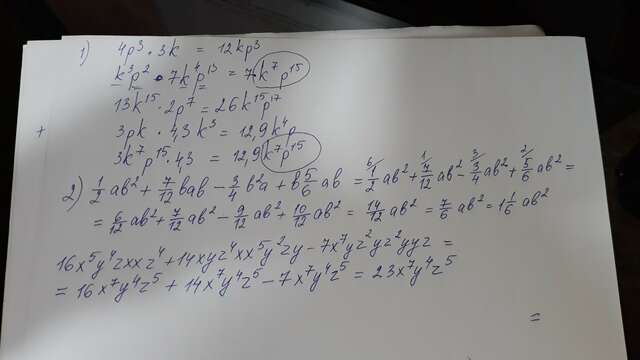 1) 4p³ · 3k = 12kp³
k³p² · 7k⁴p¹³ = 7k⁷p¹⁵
13k¹⁵ · 2p⁷ = 26k¹⁵p¹⁷
3pk · 4,3k³ = 12,9k⁴p
3k⁷p¹⁵ · 43 = 12,9k⁷p¹⁵
2) 1/2 ab² + 7/12 bab - 3/4 b²a + b 5/6 ab = 6/ 1/2 ab² + 1/ 7/12 ab² - 3/ 3/4 ab² + 2/ 5/6 ab² =
= 6/12 ab² + 7/12 ab² - 9/12 ab² + 10/12 ab² = 14/12 ab² = 7/6 ab² = 1 1/6 ab²
16x⁵y⁴zxxz⁴ + 14xyz⁴xx⁵y²zy - 7x⁷yz²yz²yyz =
= 16x⁷y⁴z⁵ + 14x⁷y⁴z⁵ - 7x⁷y⁴z⁵ = 23x⁷y⁴z⁵
=